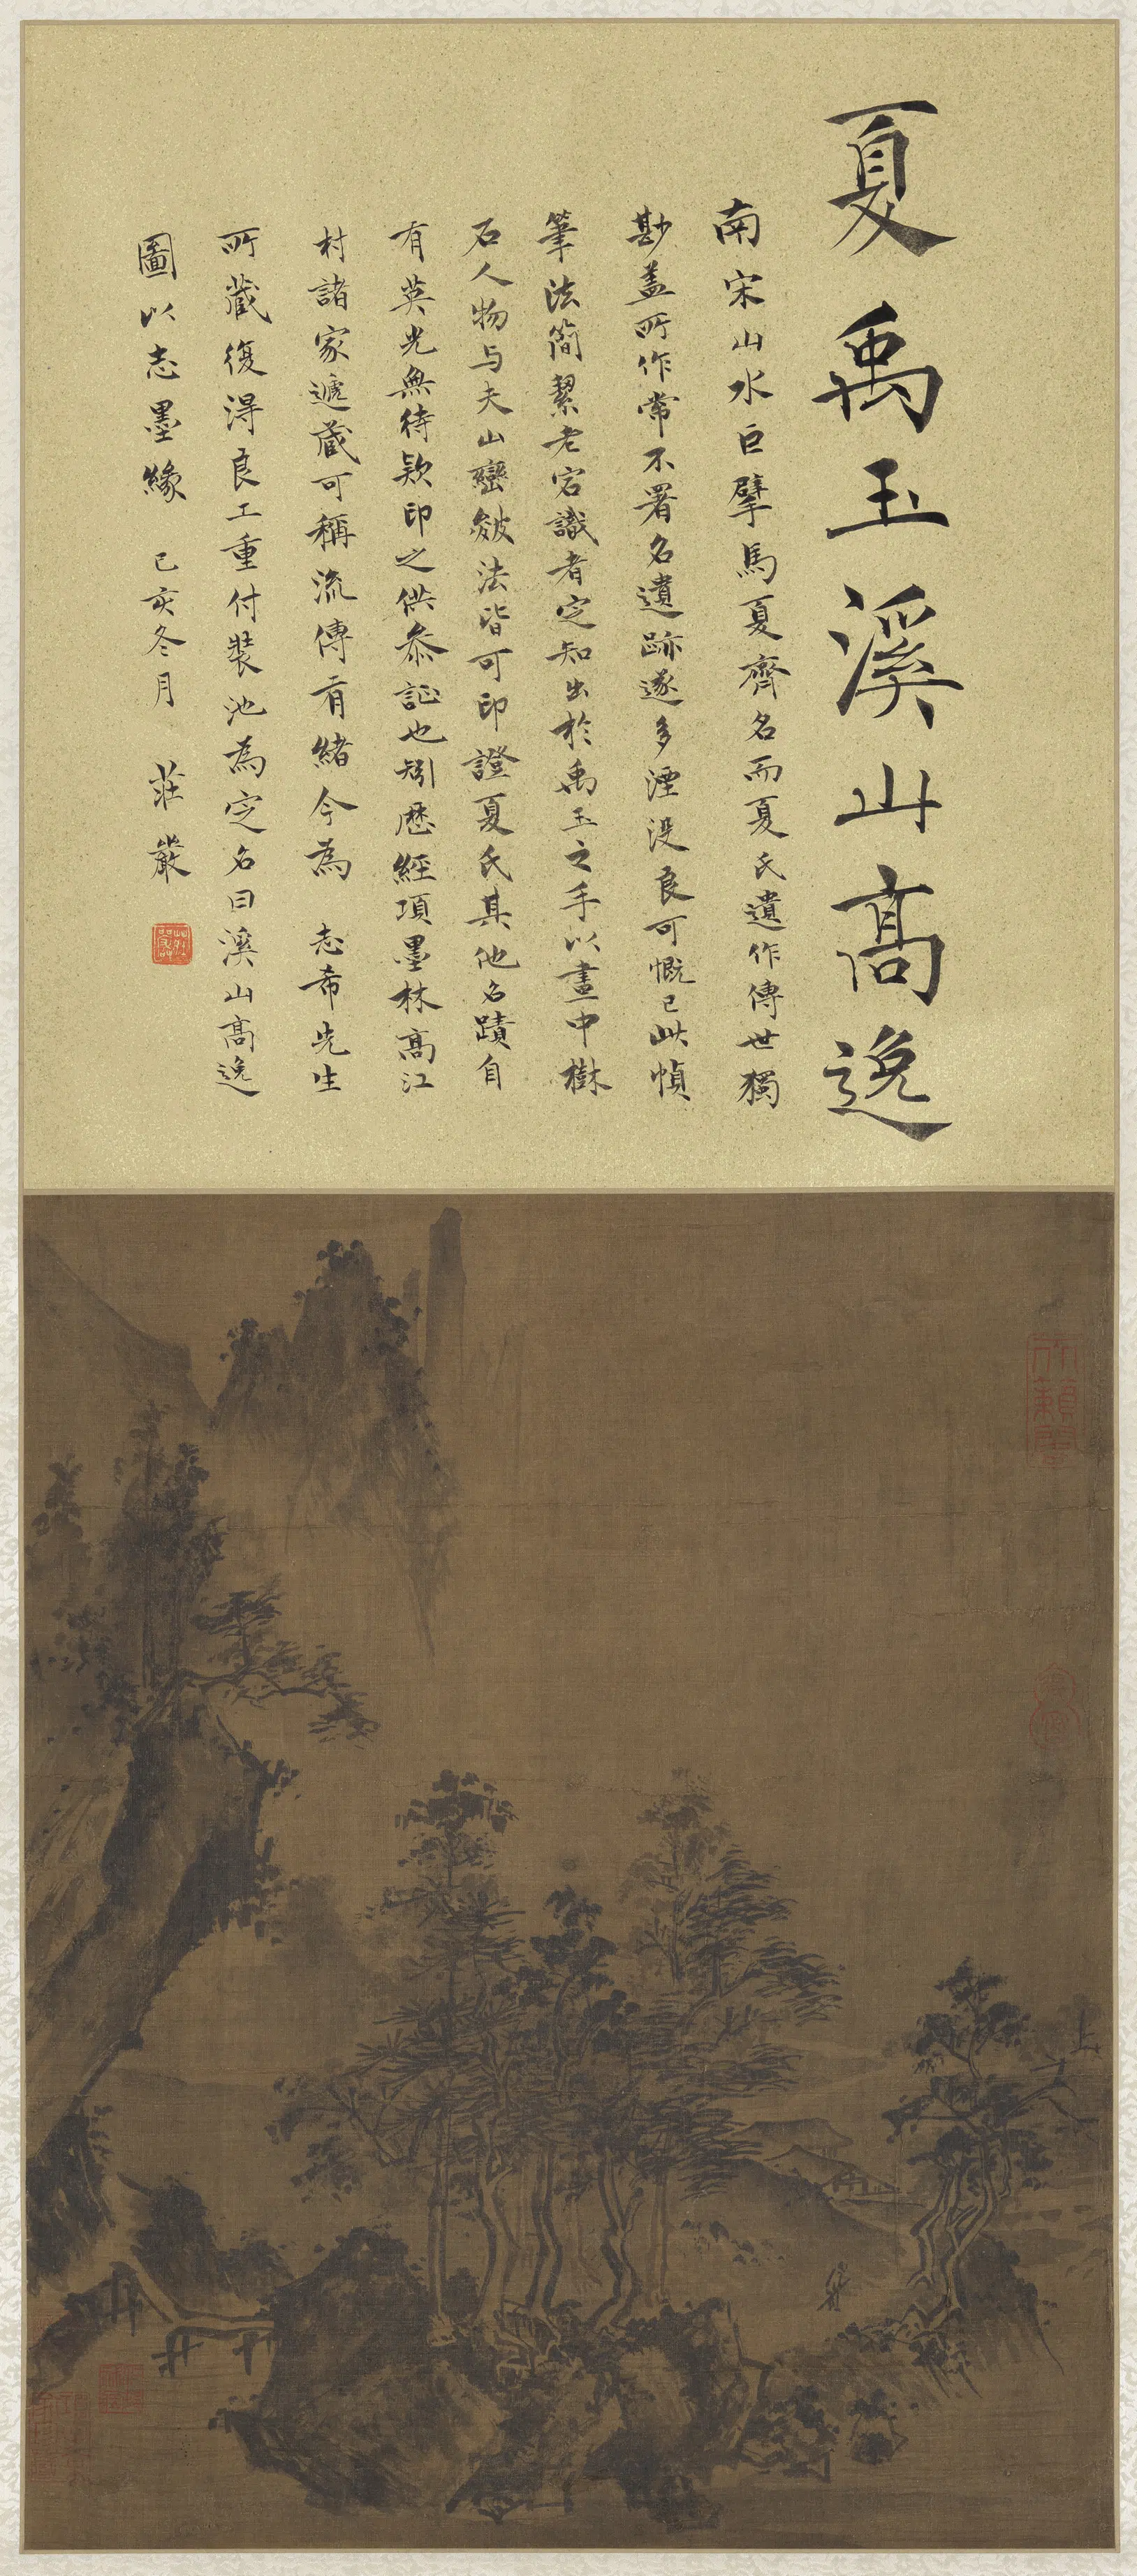 夏禹玉溪山高逸
南宋山水巨擘馬夏齊名而夏氏遺作傳世獨
尠盖所作常不署名遺跡遂多湮没良可慨已此幀
筆法簡絜老宕識者定知出於禹玉之手以畫中樹
石人物与夫山巒皴法皆可印證夏氏其他名蹟自
有英光無待欵印之供叅証也矧歷經項墨林高江
村諸家遞藏可稱流傳有緒今為 志希先生
所藏復淂良工重付裝池為定名曰溪山高逸
圖以志墨緣 己亥冬月 莊嚴